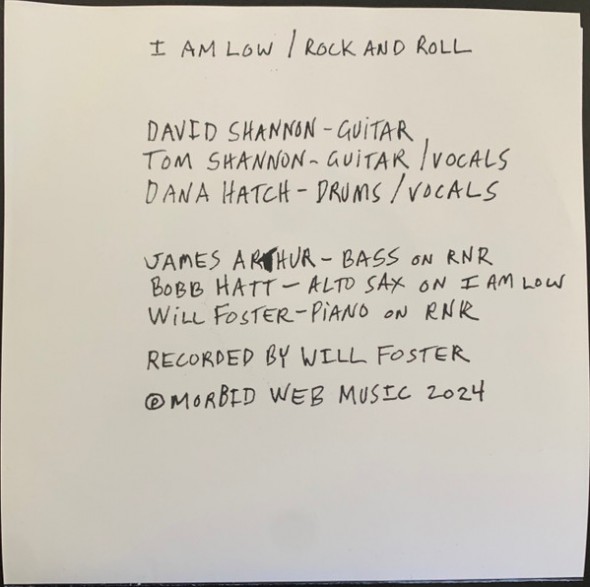 I AM LOW / ROCK AND ROLL
DAVID SHANNON - GUITAR
TOM SHANNON - GUITAR / VOCALS
DANA HATCH - DRUMS / VOCALS
JAMES ARTHUR - BASS ON RNR
BOBB HATT - ALTO SAX ON I AM LOW
WILL FOSTER - PIANO ON RNR
RECORDED BY WILL FOSTER
℗ MORBID WEB MUSIC 2024